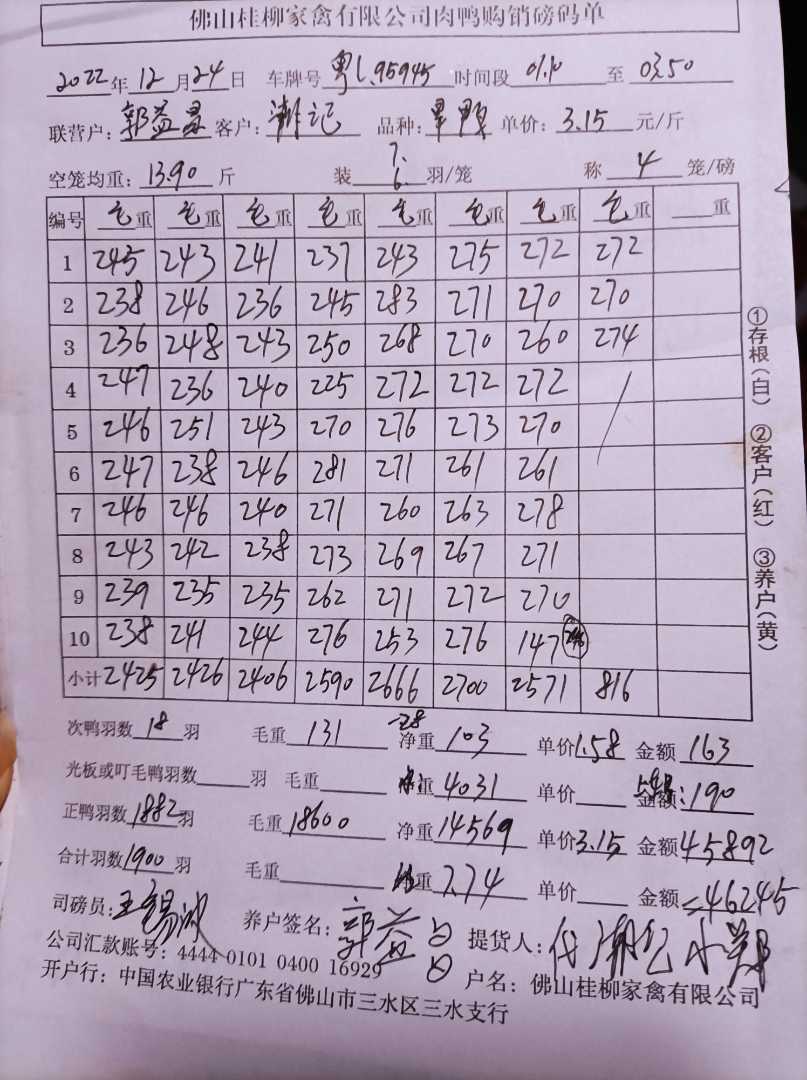 佛山桂柳家禽有限公司肉鸭购销磅码单
2022年12月24日 车牌号粤L.95945时间段01.10至03.50
联营户:郭益 客户:潮记 品种: 单价:3.15元/斤
空笼均重:13.90斤 装7.6.羽/笼 称4笼/磅
编号 毛重 毛重 毛重 毛重 毛重 毛重 毛重 毛重 重
1 245 243 241 237 243 275 272 272
2 238 246 236 245 283 271 270 270
3 236 248 243 250 268 270 260 274
4 247 236 240 225 272 272 272
5 246 251 243 270 276 273 270
6 247 238 246 281 271 261 261
7 246 246 240 271 260 263 278
8 243 242 238 273 269 267 271
9 239 235 235 262 271 272 270
10 238 241 244 276 253 276 147
小计 2425 2426 2406 2590 2666 2700 2571 816
①存根(白) ②客户(红) ③养户(黄)
次鸭羽数18羽 毛重131 -28 净重103 单价1.58 金额163
光板或叮毛鸭羽数 羽 毛重 重4031 单价 金额:190
正鸭羽数1882羽 毛重18600 净重14569 单价3.15 金额45892
合计羽数1900羽 毛重 重7.74 单价 金额46245
司磅员:王锡 养户签名:郭益 提货人:代潮记小郑
公司汇款账号:4444 0101 0400 16929 户名:佛山桂柳家禽有限公司
开户行:中国农业银行广东省佛山市三水区三水支行